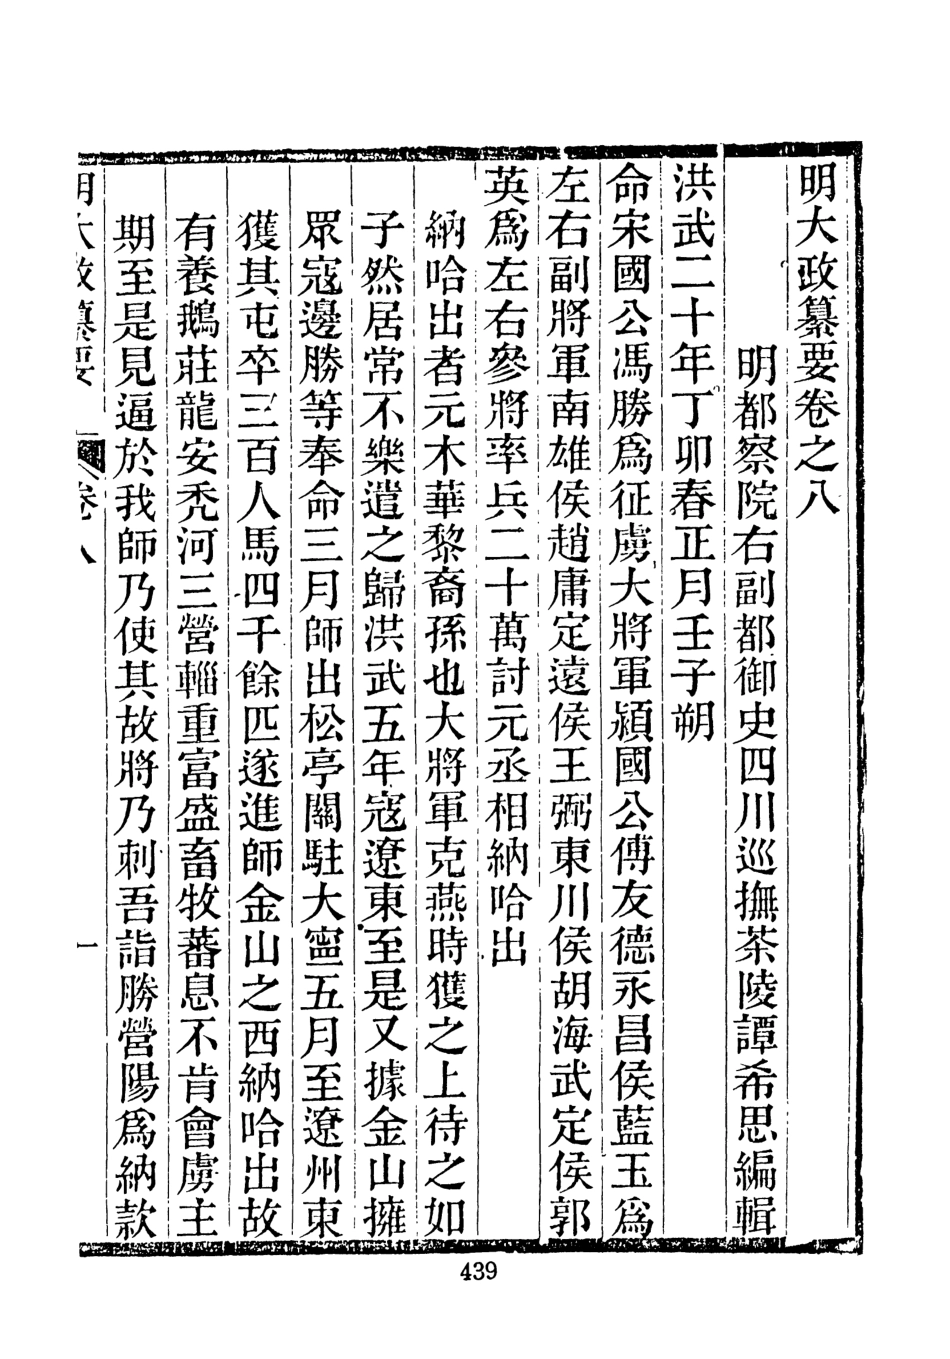 明大政纂要卷之八
明都察院右副都御史四川巡撫茶陵譚希思編輯
洪武二十年丁卯春正月壬子朔
命宋國公馮勝爲征虜大將軍潁國公傅友德永昌侯藍玉爲
左右副將軍南雄侯趙庸定遠侯王弼東川侯胡海武定侯郭
英爲左右參將率兵二十萬討元丞相納哈出
納哈出者元木華黎裔孫也大將軍克燕時獲之上待之如
子然居常不樂遣之歸洪武五年寇遼東至是又據金山擁
眾寇邊勝等奉命三月師出松亭關駐大寧五月至遼州東
獲其屯卒三百人馬四千餘匹遂進師金山之西納哈出故
有養鵝莊龍安禿河三營輜重富盛畜牧蕃息不肯會虜主
期至是見逼於我師乃使其故將乃刺吾詣勝營陽爲納款
明大政纂要
卷八
一
439